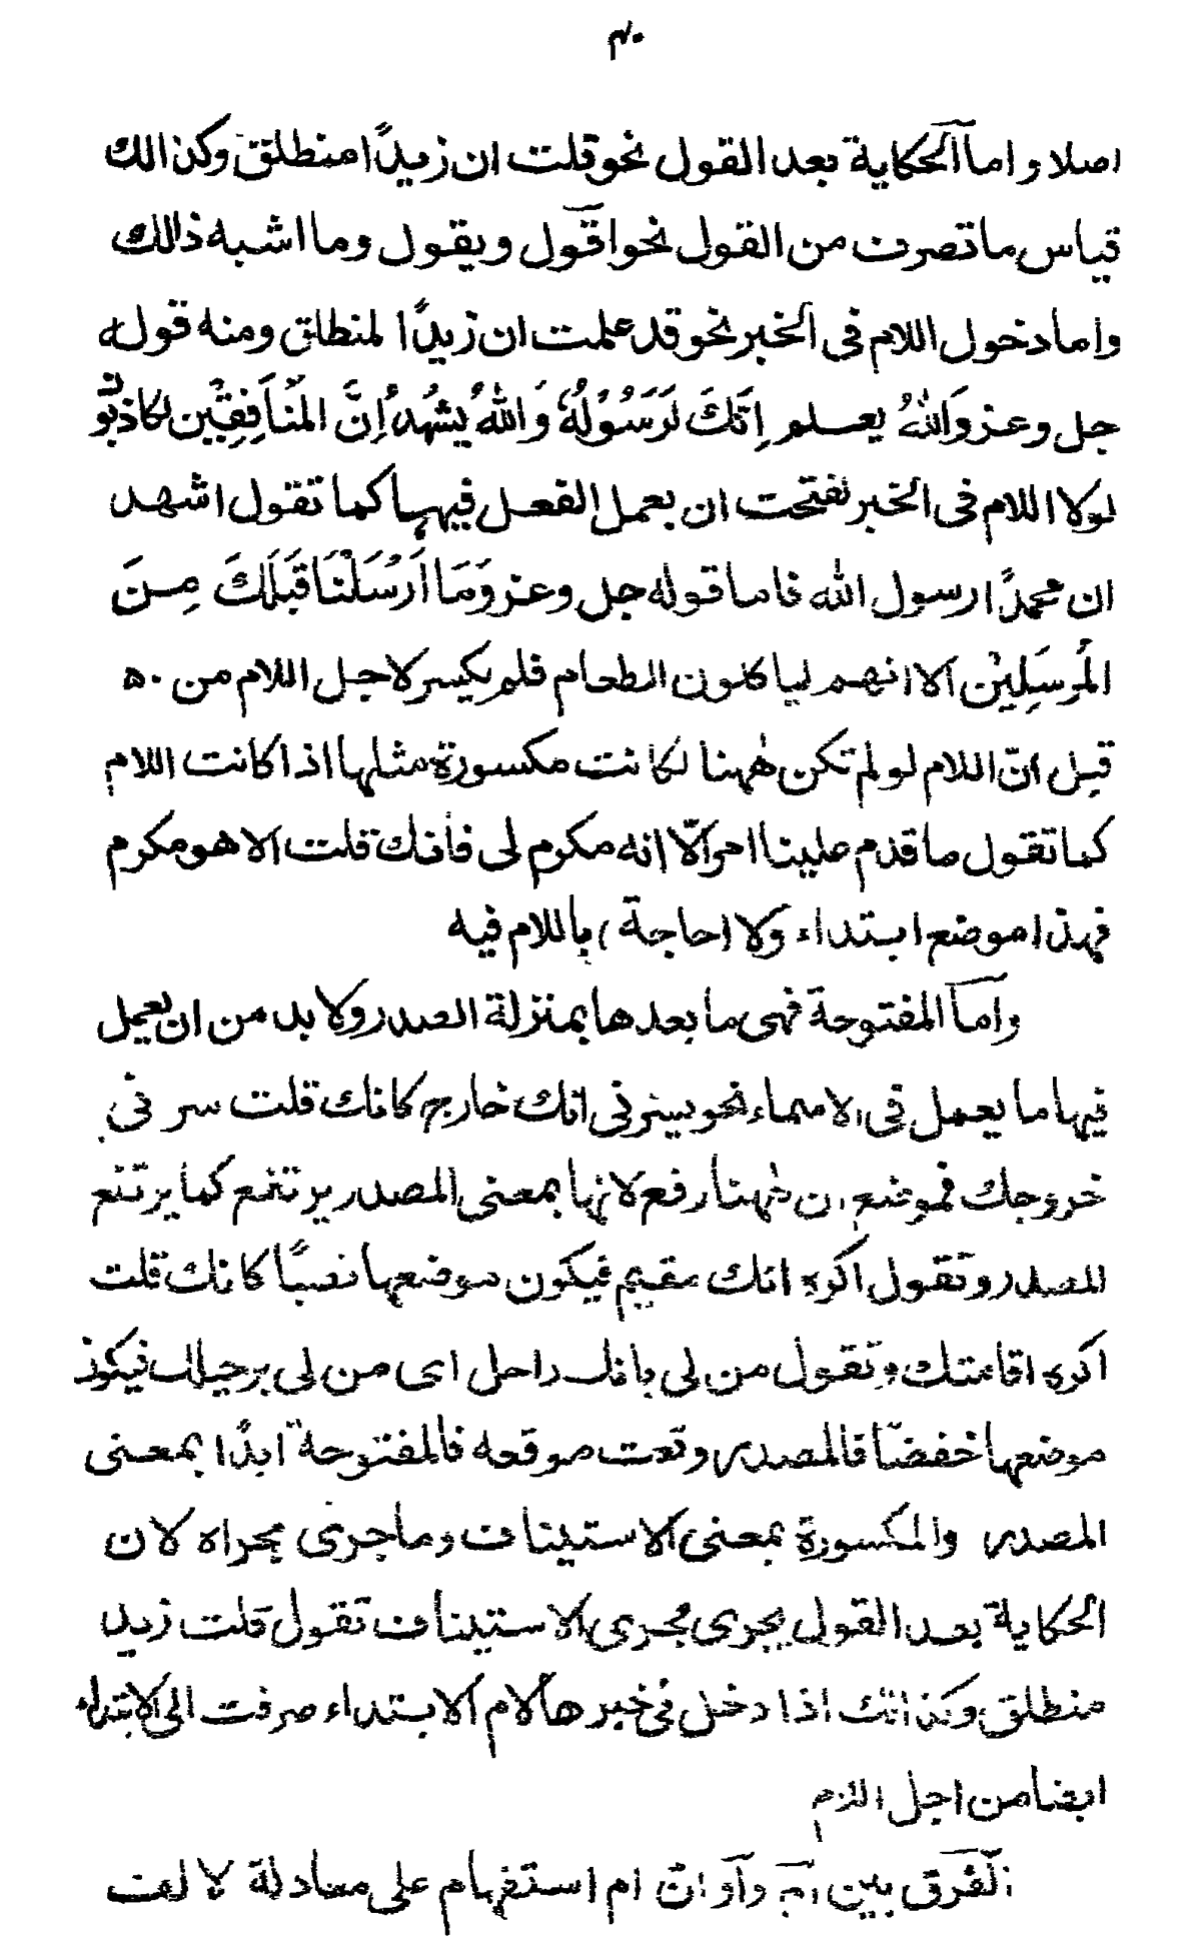 اصلا واما الحكاية بعد القول نحو قلت ان زيدًا منطلق وكذالك
قياس ما تصرف من القول نحو اقول ويقول وما اشبه ذالك
واما دخول اللام فى الخبر نحو قد علمت ان زيدًا لمنطلق ومنه قوله
جل وعز وَاللهُ يعلم اِنَّكَ لَرَسُوْلُهٗ وَاللهُ يَشْهَدُ اِنَّ الْمُنَافِقِيْن لكاذبون
لولا اللام فى الخبر لفتحت ان بعمل الفعل فيها كما تقول اشهد
ان محمدًا رسول الله فاما قوله جل وعز وَمَا اَرْسَلْنَا قَبْلَكَ مِنَ
الْمُرْسَلِيْن الا انهم لياكلون الطعام فلم يكسر لاجل اللام من
قبل انّ اللام لو لم تكن هٰهنا لكانت مكسورة مثلها اذا كانت اللام
كما تقول ما قدم علينا امرالّا انه مكرم لى فانك قلت الا هو مكرم
فهذا موضع ابتداء ولا (حاجة) باللام فيه
واما المفتوحة فهى ما بعدها بمنزلة المصدر ولا بد من ان يعمل
فيها ما يعمل فى الاسماء نحو يسرنى انك خارج كانك قلت سرنى
خروجك فموضع ان هٰهنا رفع لانها بمعنى المصدر يرتفع كما يرتفع
المصدر وتقول اكره انك مقيم فيكون موضعها نصبًا كانك قلت
اكره اقامتك وتقول من لى بانك راحل اى من لى برحيلك فيكون
موضعها خفضًا فالمصدر وقعت موقعه فالمفتوحة ابدًا بمعنى
المصدر والمكسورة بمعنى الاستيناف وما جرى مجراه لان
الحكاية بعد القول يجرى مجرى الاستيناف تقول قلت زيد
منطلق وكذالك اذا دخل فى خبرها لام الابتداء صرفت الى الابتداء
ايضا من اجل اللام
الفرق بين ام واو ان ام استفهام على معادلة لا لف